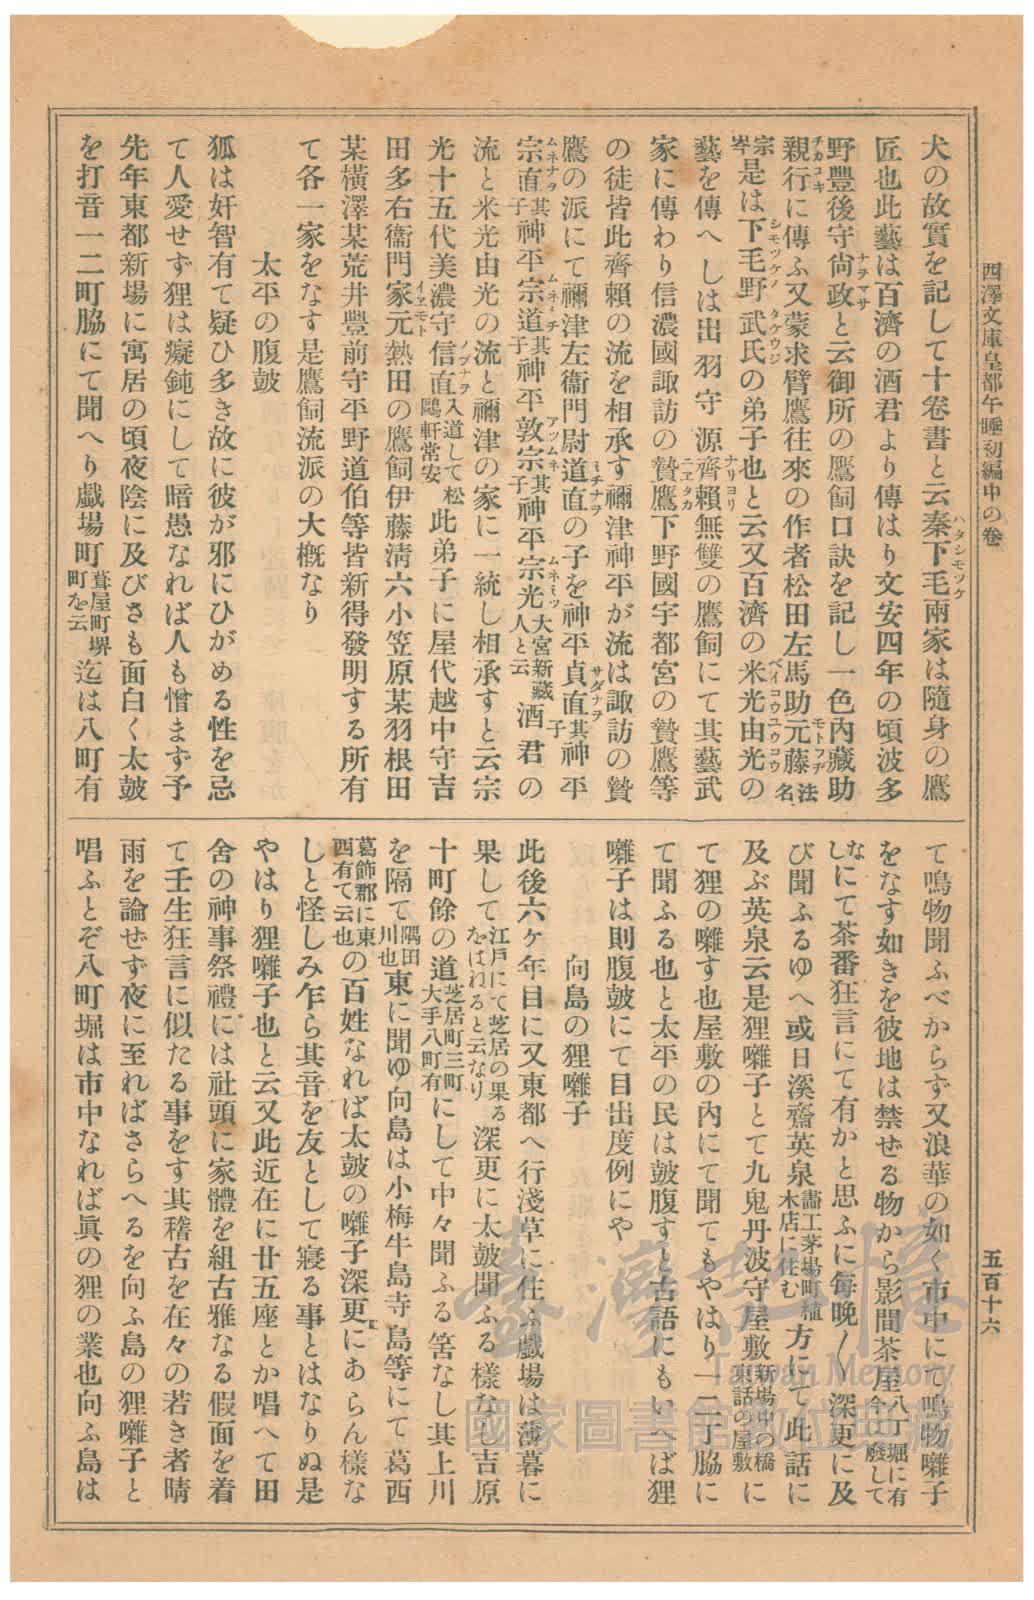 西澤文庫皇都午睡初編中の卷
五百十六
犬の故實を記して十卷書と云秦下毛兩家は隨身の鷹
匠也此藝は百濟の酒君より傳はり文安四年の頃波多
野豐後守尙政と云御所の鷹飼口訣を記し一色內藏助
親行に傳ふ又蒙求臂鷹往來の作者松田左馬助元藤法名
宗岑是は下毛野武氏の弟子也と云又百濟の米光由光の
藝を傳へしは出羽守源齊賴無雙の鷹飼にて其藝武
家に傳わり信濃國諏訪の贄鷹下野國宇都宮の贄鷹等
の徒皆此齊賴の流を相承す禰津神平が流は諏訪の贄
鷹の派にて禰津左衞門尉道直の子を神平貞直其子神平
宗直其子神平宗道其子神平敦宗其子神平宗光大宮新藏人と云酒君の
流と米光由光の流と禰津の家に一統し相承すと云宗
光十五代美濃守信直入道して松鷗軒常安此弟子に屋代越中守吉
田多右衞門家元熱田の鷹飼伊藤淸六小笠原某羽根田
某橫澤某荒井豐前守平野道伯等皆新得發明する所有
て各一家をなす是鷹飼流派の大槪なり
太平の腹皷
狐は奸智有て疑ひ多き故に彼が邪にひがめる性を忌
て人愛せず狸は癡鈍にして暗愚なれば人も憎まず予
先年東都新場に寓居の頃夜陰に及びさも面白く太皷
を打音一二町脇にて聞へり戲場町葺屋町堺町を云迄は八町有
て鳴物聞ふべからず又浪華の如く市中にて鳴物囃子
をなす如きを彼地は禁ぜる物から影間茶屋八丁堀に有今は廢して
なしにて茶番狂言にて有かと思ふに每晚〱深更に及
び聞ふるゆへ或日溪齋英泉畵工茅場町植木店に住む方にて此話に
及ぶ英泉云是狸囃子とて九鬼丹波守屋敷新場中の橋東話の屋敷に
て狸の囃す也屋敷の內にて聞てもやはり一二丁脇に
て聞ふる也と太平の民は皷腹すと古語にもいへば狸
囃子は則腹皷にて目出度例にや
向島の狸囃子
此後六ヶ年目に又東都へ行淺草に住ふ戲場は薄暮に
果して江戶にて芝居の果るをはねると云なり深更に太皷聞ふる樣なし吉原
十町餘の道芝居町三町大手八町有にして中々聞ふる筈なし其上川
を隔て隅田川也東に聞ゆ向島は小梅牛島寺島等にて葛西
葛飾郡に東西有て云也の百姓なれば太皷の囃子深更にあらん樣な
しと怪しみ乍ら其音を友として寢る事とはなりぬ是
やはり狸囃子也と云又此近在に廿五座とか唱へて田
舍の神事祭禮には社頭に家體を組古雅なる假面を着
て壬生狂言に似たる事をす其稽古を在々の若き者晴
雨を論ぜず夜に至ればさらへるを向ふ島の狸囃子と
唱ふとぞ八町堀は市中なれば眞の狸の業也向ふ島は
臺灣記憶
Taiwan Memory
國家圖書館數位典藏